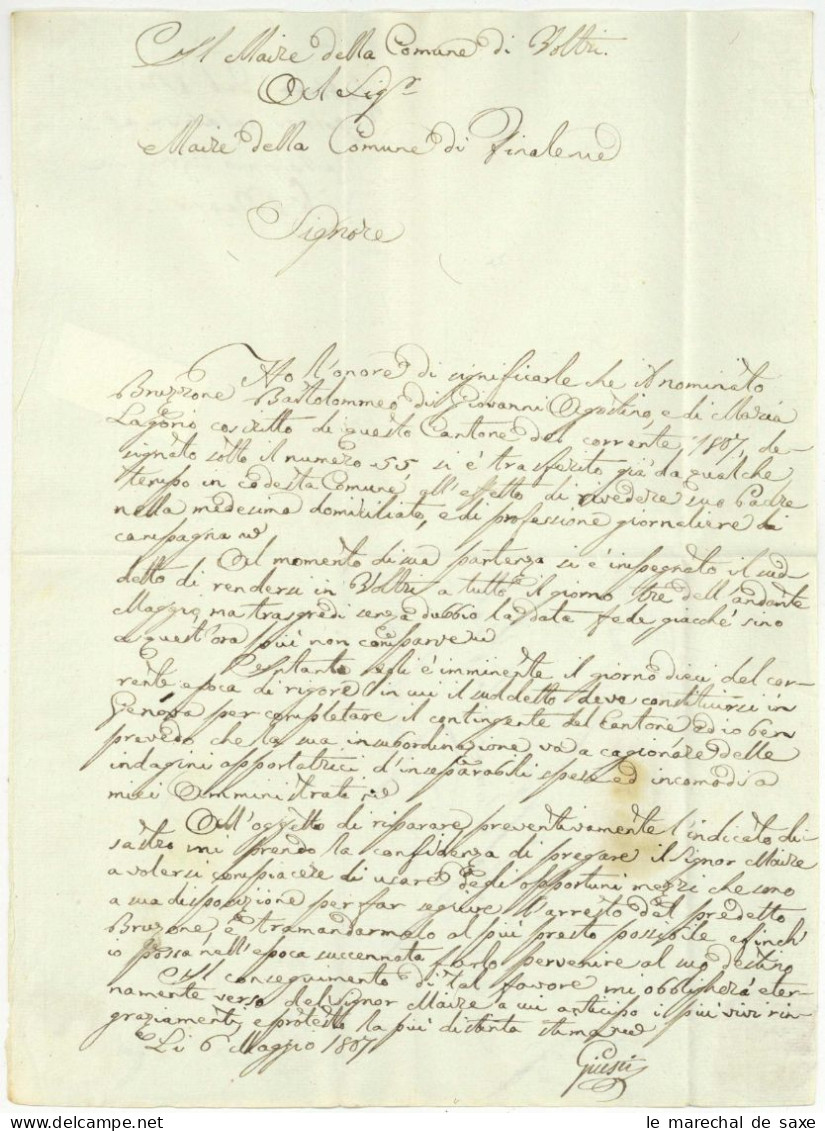 Il Maire della Comune di Voltri.
Al Sig.r
Maire della Comune di
Signore
Ho l'onore di significarle che il nominato
Bruzzone Bartolommeo di Giovanni Agostino, e di Maria
Lagorio coscritto di questo Cantone del corrente 1807, de-
signato sotto il numero 55 si è trasferito già da qualche
tempo in codesta Comune all'effetto di rivedere suo Padre
nella medesima domiciliato, e di professione giornaliere di
campagna
Al momento di sua partenza si è impegnato il sud-
detto di rendersi in Voltri a tutto il giorno tre dell'andante
Maggio, ma trasgredì senza dubbio la data fede giacché sino
a quest'ora più non comparve
Intanto egli è imminente il giorno dieci del cor-
rente epoca di rigore in cui il suddetto deve constituirsi in
Genova per completare il contingente del Cantone ed io ben
prevedo che la sua insubordinazione va a cagionare delle
indagini apportatrici d'inseparabili spese ed incomodi a
miei Amministrati
All'oggetto di riparare preventivamente l'indicato di-
sastro mi prendo la confidenza di pregare il Signor Maire
a volersi compiacere di usare degli opportuni mezzi che sono
a sua disposizione per far seguire l'arresto del predetto
Bruzone, e tramandarmelo al più presto possibile affinch'
io possa nell'epoca succennata farlo pervenire al suo destino
Il conseguimento di tal favore mi obbligherà eter-
namente verso del Signor Maire a cui anticipo i più vivi rin-
graziamenti, e protesto la più distinta stima
Li 6 Maggio 1807
le marechal de saxe